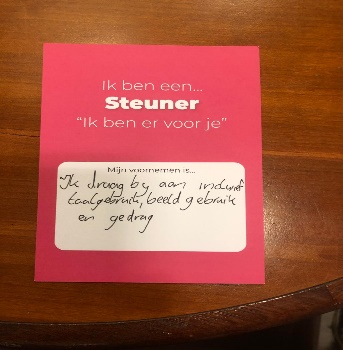 Ik ben een...
Steuner
"Ik ben er voor je"
Mijn voornemen is...
Ik draag bij aan inclusief
taalgebruik, beeldgebruik
en gedrag